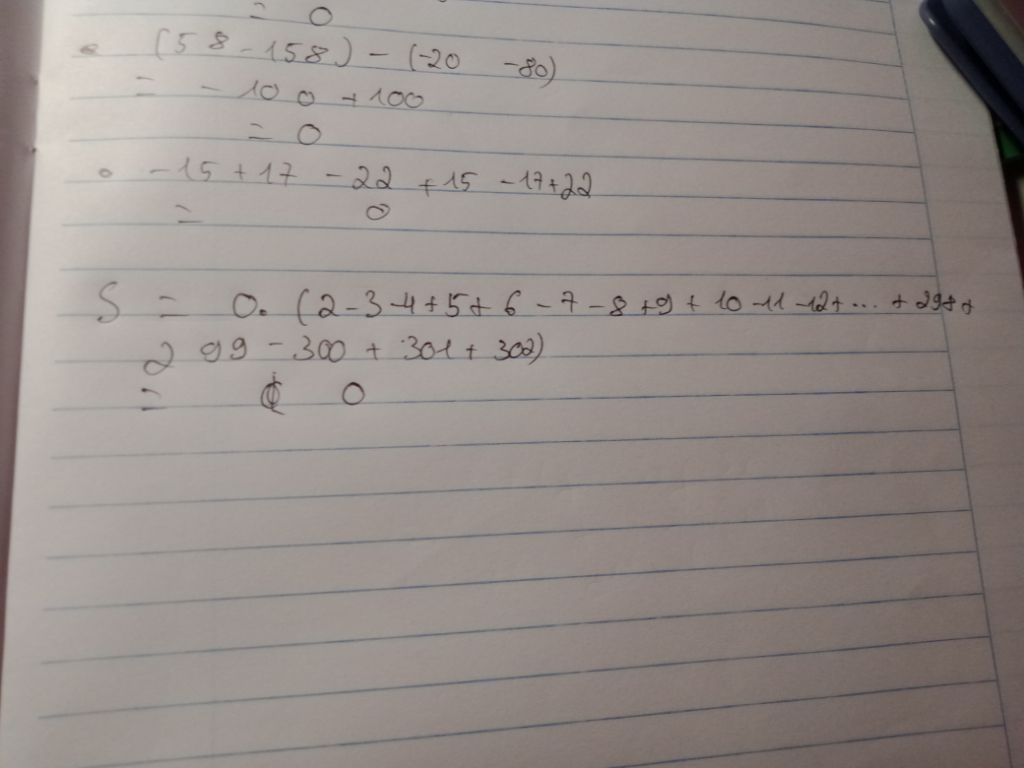 = 0
• (58 - 158) - (-20 -80)
= - 100 + 100
= 0
• -15 + 17 - 22 + 15 - 17 + 22
= 0
S = 0. (2 - 3 - 4 + 5 + 6 - 7 - 8 + 9 + 10 - 11 - 12 + ... +
299 - 300 + 301 + 302)
= 0